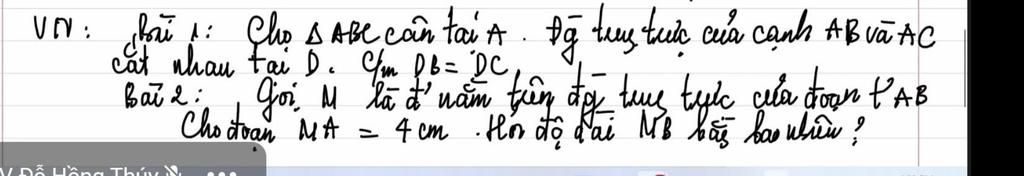 VN: Bài 1: Cho Δ ABC cân tại A. Đg trung trực của cạnh AB và AC
cắt nhau tại D. C/m DB = DC
Bài 2: Gọi M là đ' nằm trên đg trung trực của đoạn t' AB
Cho đoạn MA = 4cm. Hỏi độ dài MB bằg bao nhiêu?
V Đỗ Hồng Thúy